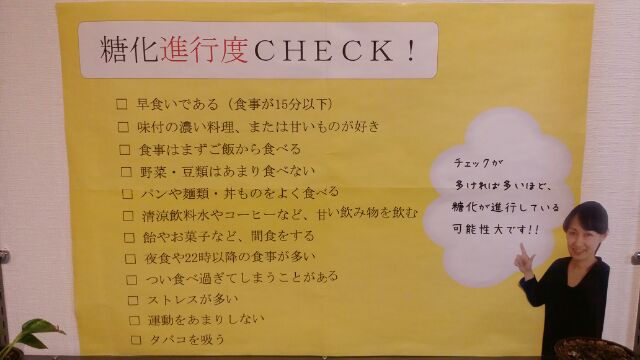 糖化進行度CHECK!
□ 早食いである（食事が15分以下）
□ 味付の濃い料理、または甘いものが好き
□ 食事はまずご飯から食べる
□ 野菜・豆類はあまり食べない
□ パンや麺類・丼ものをよく食べる
□ 清涼飲料水やコーヒーなど、甘い飲み物を飲む
□ 飴やお菓子など、間食をする
□ 夜食や22時以降の食事が多い
□ つい食べ過ぎてしまうことがある
□ ストレスが多い
□ 運動をあまりしない
□ タバコを吸う
チェックが
多ければ多いほど、
糖化が進行している
可能性大です!!